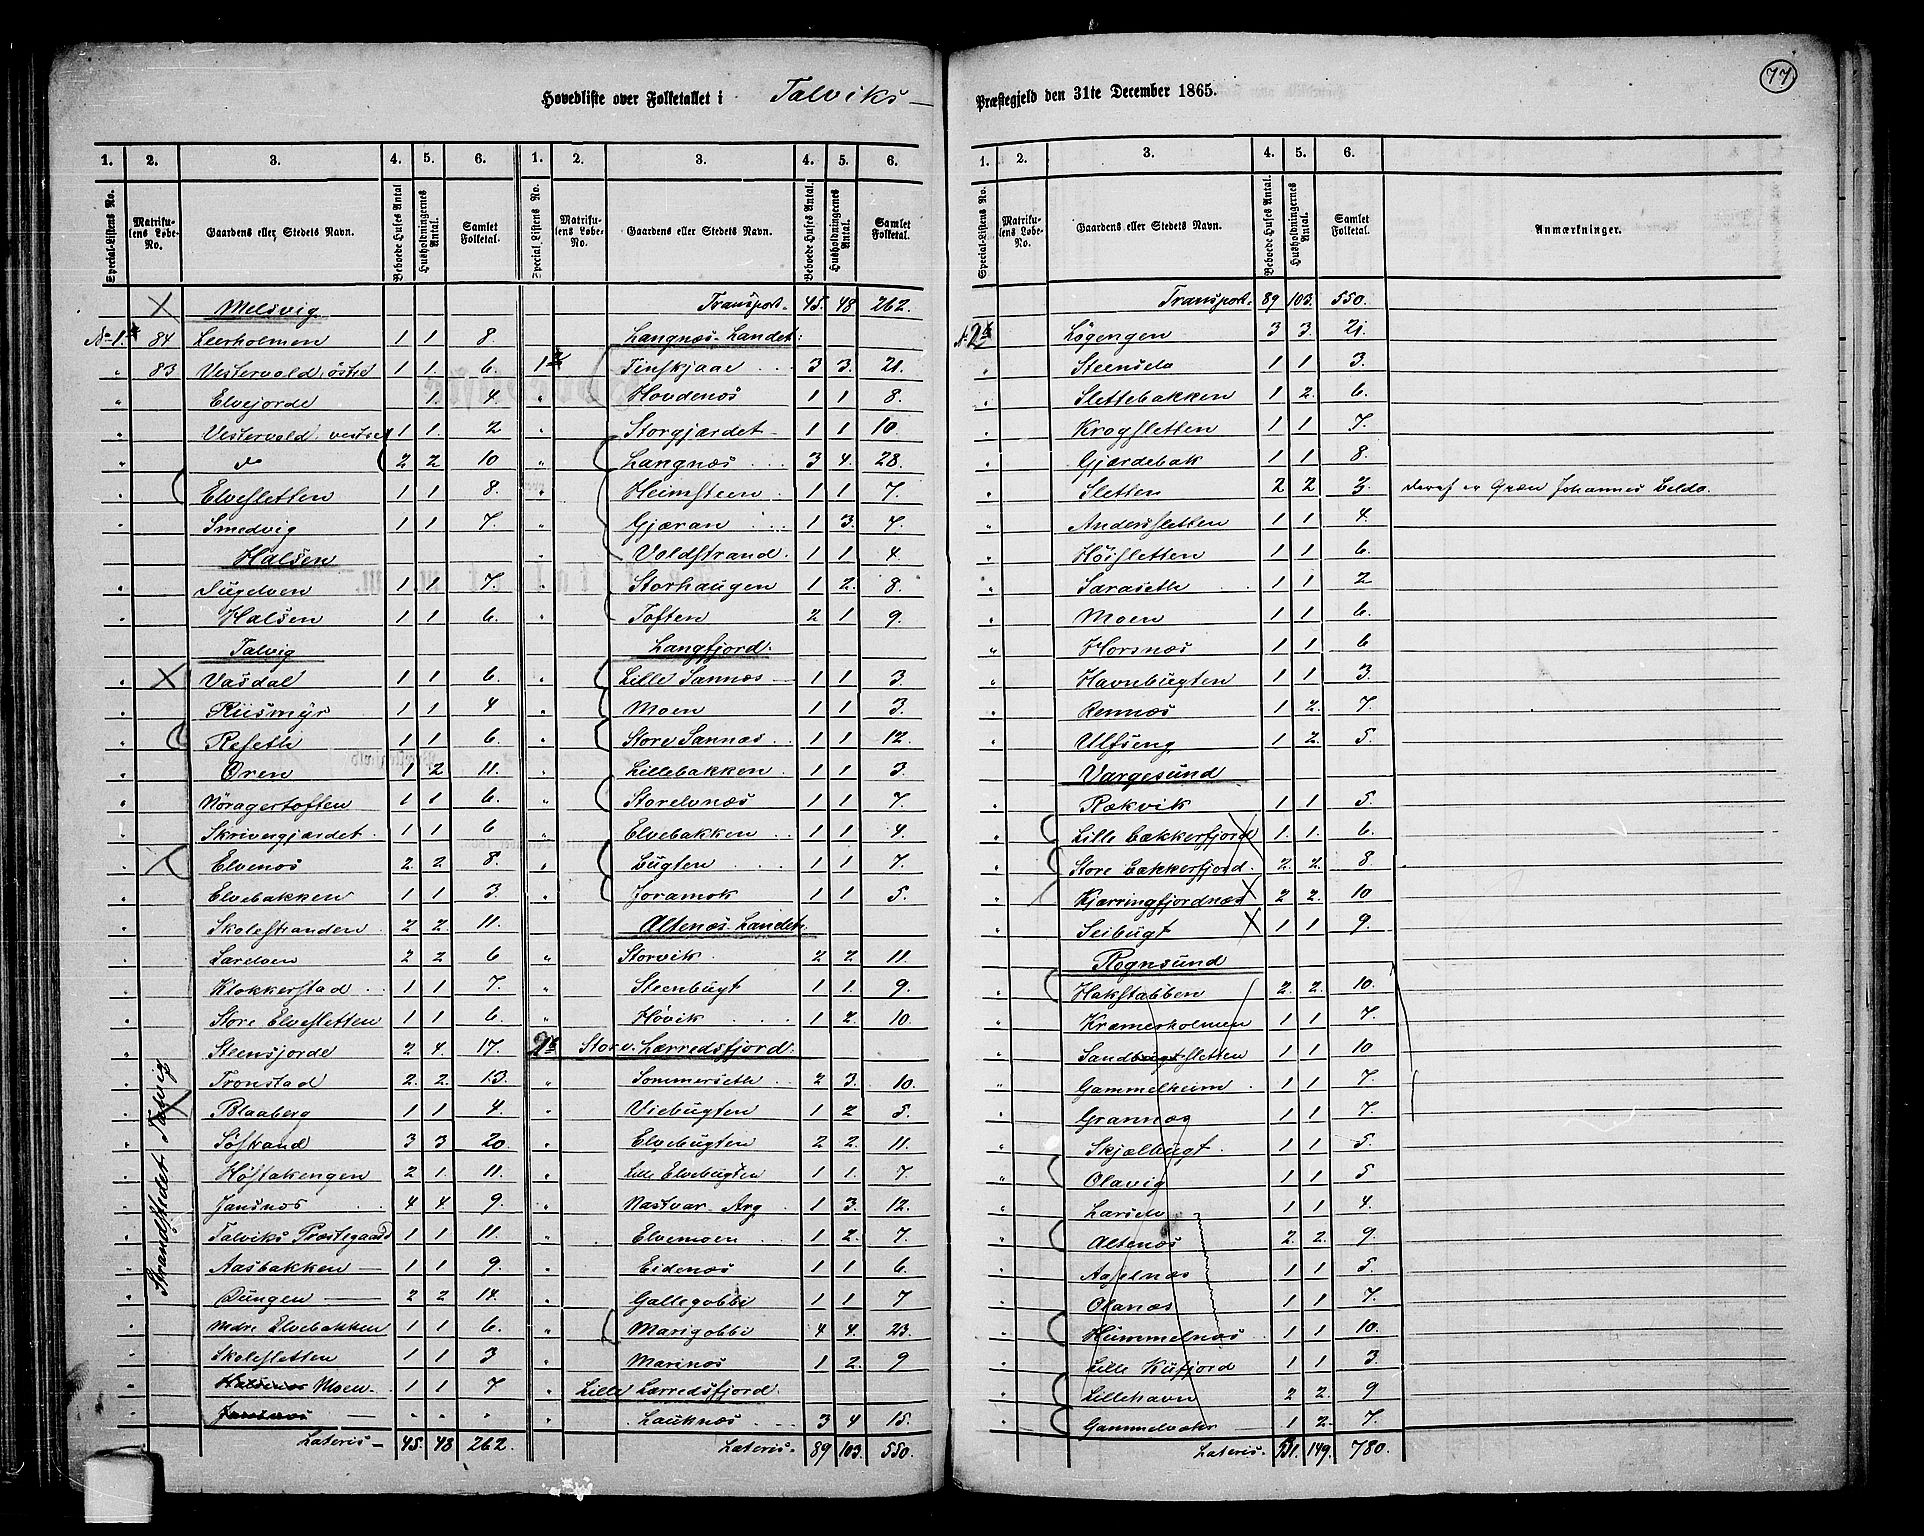 77
Hovedliste over Folketallet i Talviks
Præstegjeld den 31te December 1865.
1. 2. 3. 4. 5. 6. 1. 2. 3. 4. 5. 6.
Special-Listens No. Matrikulens Løbe-No. Gaardens eller Stedets Navn. Beboede Huses Antal Husholdningernes Antal. Samlet Folketal. Special-Listens No. Matrikulens Løbe-No. Gaardens eller Stedets Navn. Beboede Huses Antal. Husholdningernes Antal. Samlet Folketal.
Melsvig
No 1 84 Leerholmen 1 1 8.
" 83 Vestervold, östre 1 1. 6.
" Elvejorde 1. 4.
" Vestervold, vestre 1 1. 2
" do 2 2 10
" Elvesletten 1 1 8.
" Smedvig 1 1 7.
Halsen
" 1 1 7.
" Halsen 1 1 6.
Talvig
" Vasdal 1 1 6.
" Riismyr 1 1 4
" Reseth 1 1 6.
" Øren 1 2 11.
" Nöragertoften 1 1 6.
" Skrivergjærdet. 1 1 6
" Elvenes 2. 2. 8
" Elvebakken 1 1 3.
" Skolestranden. 2 2. 11.
" Larelven 2 2 6
" Klokkerstad 1 1 7.
" Store Elvesletten 1 1 6.
" Steensjorde 2 4. 17.
" Tronstad 2. 2. 13.
" Blaaberg 1 1 4.
" Söstrand 3 3 20.
" Höstakengen 2 1. 11.
" Jansnæs 4 4. 9.
" Talviks Præstegaard 1 1 11.
" Aasbakken 1 1 9.
" Düngen 2 2 14.
" Ndre Elvebakken 1 1 6.
" Skolesletten 1 1 3
" Moen 1 1 7
" Jansnæs " " "
Lateris 45. 48 262.
Strandstedet Talvig
Transport 45. 48 262.
Langnæs-Landet:
1 Finskjaae 3 3. 21.
" Hovdenæs 1 1 8.
" Storgjærdet 1 1 10.
" Langnæs 3 4. 28.
" Heimsteen 1 1 7.
" Gjæran 1 3. 7.
" Voldstrand. 1 1 4.
" Storhaugen 1 2. 8.
" Toften 2 1 9.
Langfjord.
" Lille Sannæs 1 1 3.
" Moen 1 1 3.
" Store Sannæs 1 1 12.
" Lillebakken 1 1 3.
" Storelvnæs 1 1 7.
" Elvebakken 1 1 4.
" Bugten 1 1 7.
" Joramok 1 1 5.
Altenæs-Landet.
" Storvik 2 2 11.
" Steenbügt 1 1. 9.
" Hövik 1 2. 10.
2 Store Lærredsfjord:
" Sommerseth 2 3. 10.
" Viebugten 1 2 5.
" Elvebügten 2 2. 11.
" Lille Elvebugten 1 1. 7.
" Nastvar Arg 1 3. 12.
" Elvemoen 1 2. 7
" Eidenæs 1 1 6.
" Gallegobbi 1 1 7
" Marigobbi 4 4. 23.
" Marinæs 1 2. 9
" Lille Lærredsfjord.
" Lauknæs 3 4 15.
Lateris. 89 103. 550.
1. 2. 3. 4. 5. 6.
Special-Listens No. Matrikulens Løbe-No. Gaardens eller Stedets Navn. Beboede Huses Antal. Husholdningernes Antal. Samlet Folketal. Anmærkninger.
Transport 89 103. 550.
No 2 Lögengen 3 3. 21.
" 1 1 3.
" Slettebakken 1 2. 6.
" Krogsletten 1 1 7.
" Gjærdebak 1 1 8.
" Sletten 2 2 3. deraf er Johannes
" Anderssletten 1 1 4.
" Höisletten 1 1 6.
" Saraseth 1 1 2
" Moen 1 1 6.
" Horsnæs 1 1 6
" Havnbügten 1 1 3.
" Rennæs 1 2. 7.
" Ulfseng 1 2. 5.
Vargesund
" Rækvik 1 1 5.
" Lille Bækkerfjord 1. 1. 6.
" Store Bækkerfjord. 2. 2. 8.
" Kjærringfjordnæs 2 2. 10
" Seibügt 1 1 9.
Rognsund
" Hakstabben 2. 2. 10.
" Kramerholmen 1 1 7.
" Sandbugtsletten 1 1 10
" Gammelheim 1 1 7.
" Grannæs 1 1 7.
" Skjælbügt. 1 1 5.
" Olavig 1 1 5
" 1 1 4.
" Altenæs 2. 2. 9
" 1 1 5.
" Olanæs 1 1 7.
" Hümmelnæs 1 1 10.
" Lille Küfjord 1 1 3.
" Lillehavn 2 2. 9
" 1 2. 7.
Lateris. 131. 149. 780.